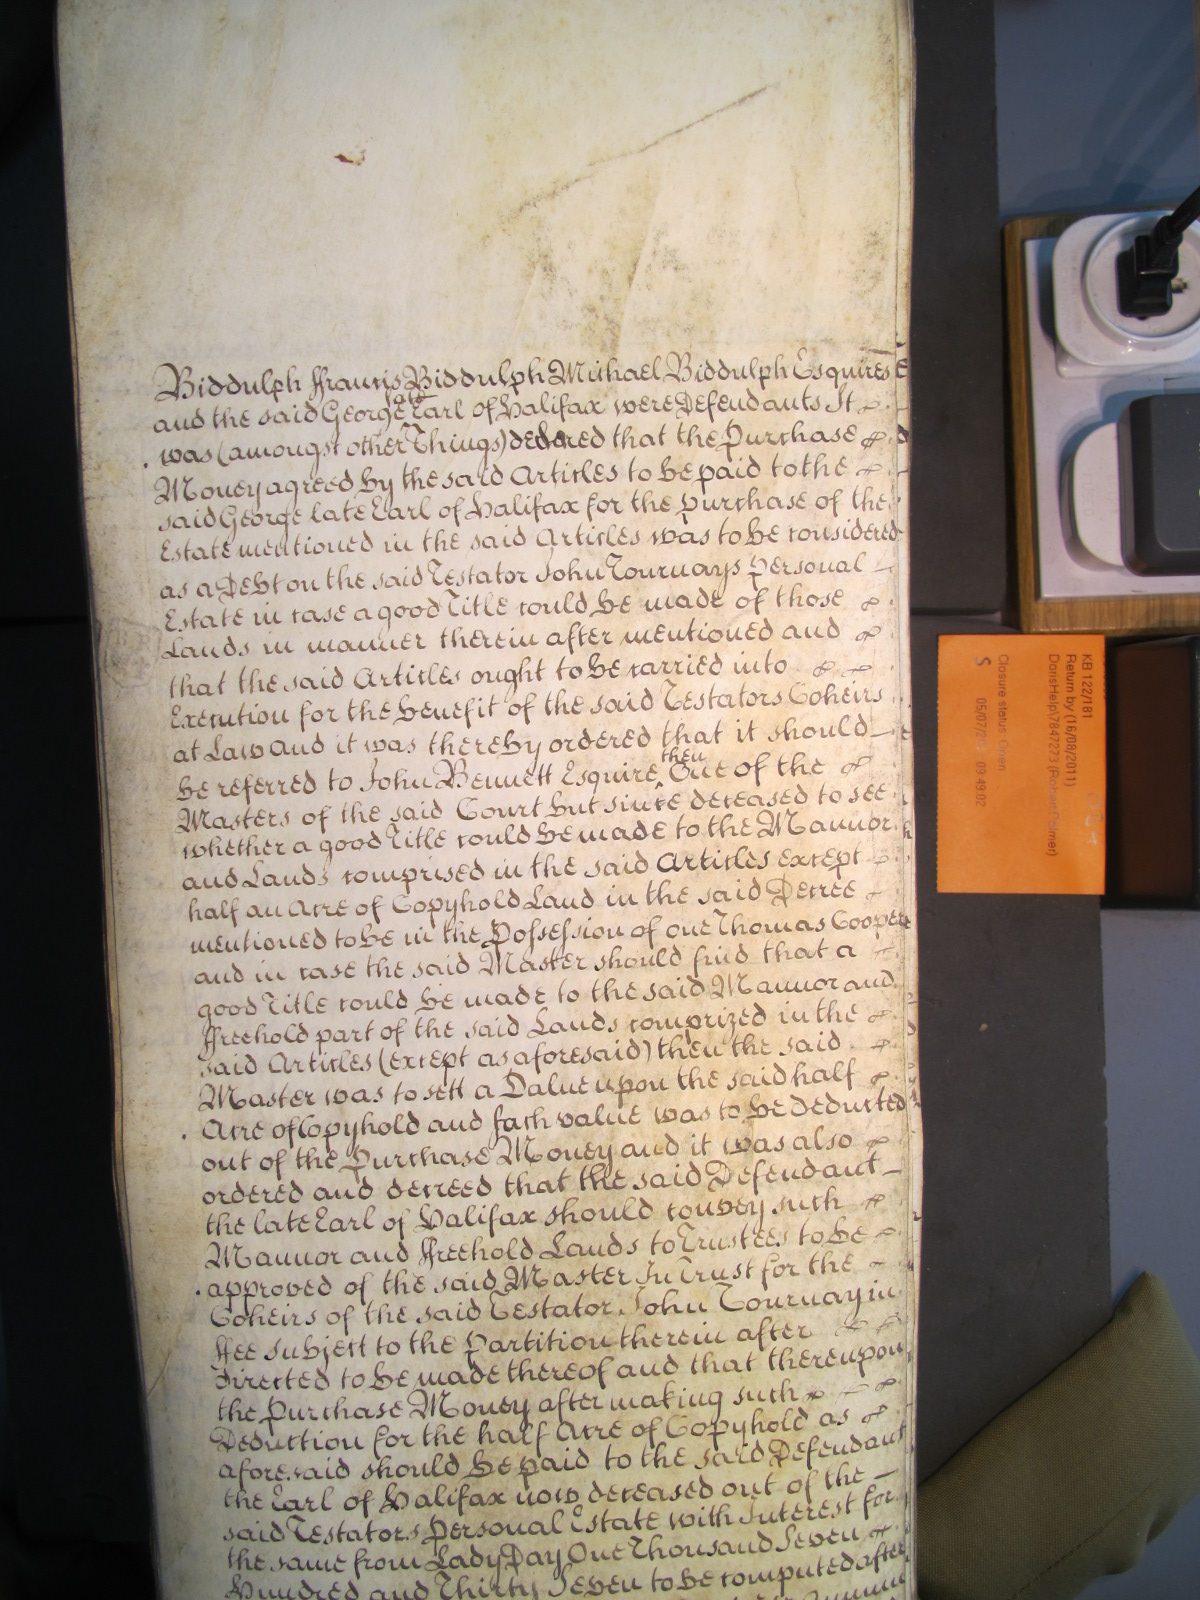 Biddulph Francis Biddulph Michael Biddulph Esquires
and the said George late Earl of Halifax were Defendants It
was (amongst other Things) decreed that the Purchase
Money agreed by the said Articles to be paid to the
said George late Earl of Halifax for the purchase of the
Estate mentioned in the said Articles was to be considered
as a Debt on the said Testator John Tournays Personal
Estate in case a good Title could be made of those
Lands in manner therein after mentioned and
that the said Articles ought to be carried into
Execution for the benefit of the said Testators Coheirs
at Law and it was thereby ordered that it should
be referred to John Bennett Esquire then One of the
Masters of the said Court but since deceased to see
whether a good Title could be made to the Mannor
and Lands comprised in the said Articles except
half an Acre of Copyhold Land in the said Decree
mentioned to be in the Possession of one Thomas Cooper
and in case the said Master should find that a
good Title could be made to the said Mannor and
ffreehold part of the said Lands comprized in the
said Articles (except as aforesaid) then the said
Master was to sett a Value upon the said half
Acre of Copyhold and such value was to be deducted
out of the Purchase Money and it was also
ordered and decreed that the said Defendant
the late Earl of Halifax should convey such
Mannor and ffreehold Lands to Trustees to be
approved of the said Master In Trust for the
Coheirs of the said Testator John Tournay in
ffee subject to the Partition therein after
directed to be made thereof and that thereupon
the Purchase Money after making such
Deduction for the half Acre of Copyhold as
aforesaid should be paid to the said Defendant
the Earl of Halifax now deceased out of the
said Testators Personal Estate with Interest for
the same from Lady Day One Thousand Seven
Hundred and Thirty Seven to be computed after
KB 122/181
Return by (16/08/2011)
DorisHelp\7847273 (Rohan Palmer)
Closure status Open
S 05/07/ 09:49:02